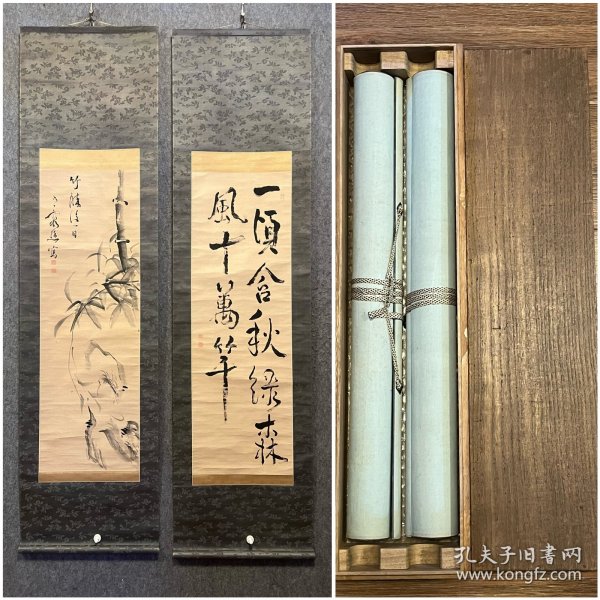 竹醉後一日
寫
一頃含秋綠森
風十萬竿
孔夫子旧书网
www.kongfz.com